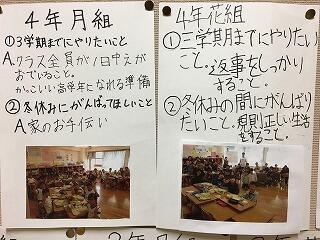 4年月組
①3学期までにやりたいこと
A.クラス全員が1日中えが
おでいること。
かっこいい高学年になれる準備
②冬休みにがんばってほしいこと
A家のお手伝い
4年花組
①三学期までにやりたい
こと。返事をしっかり
すること。
②冬休みの間にがんばり
たいこと。規則正しい生活
をすること。